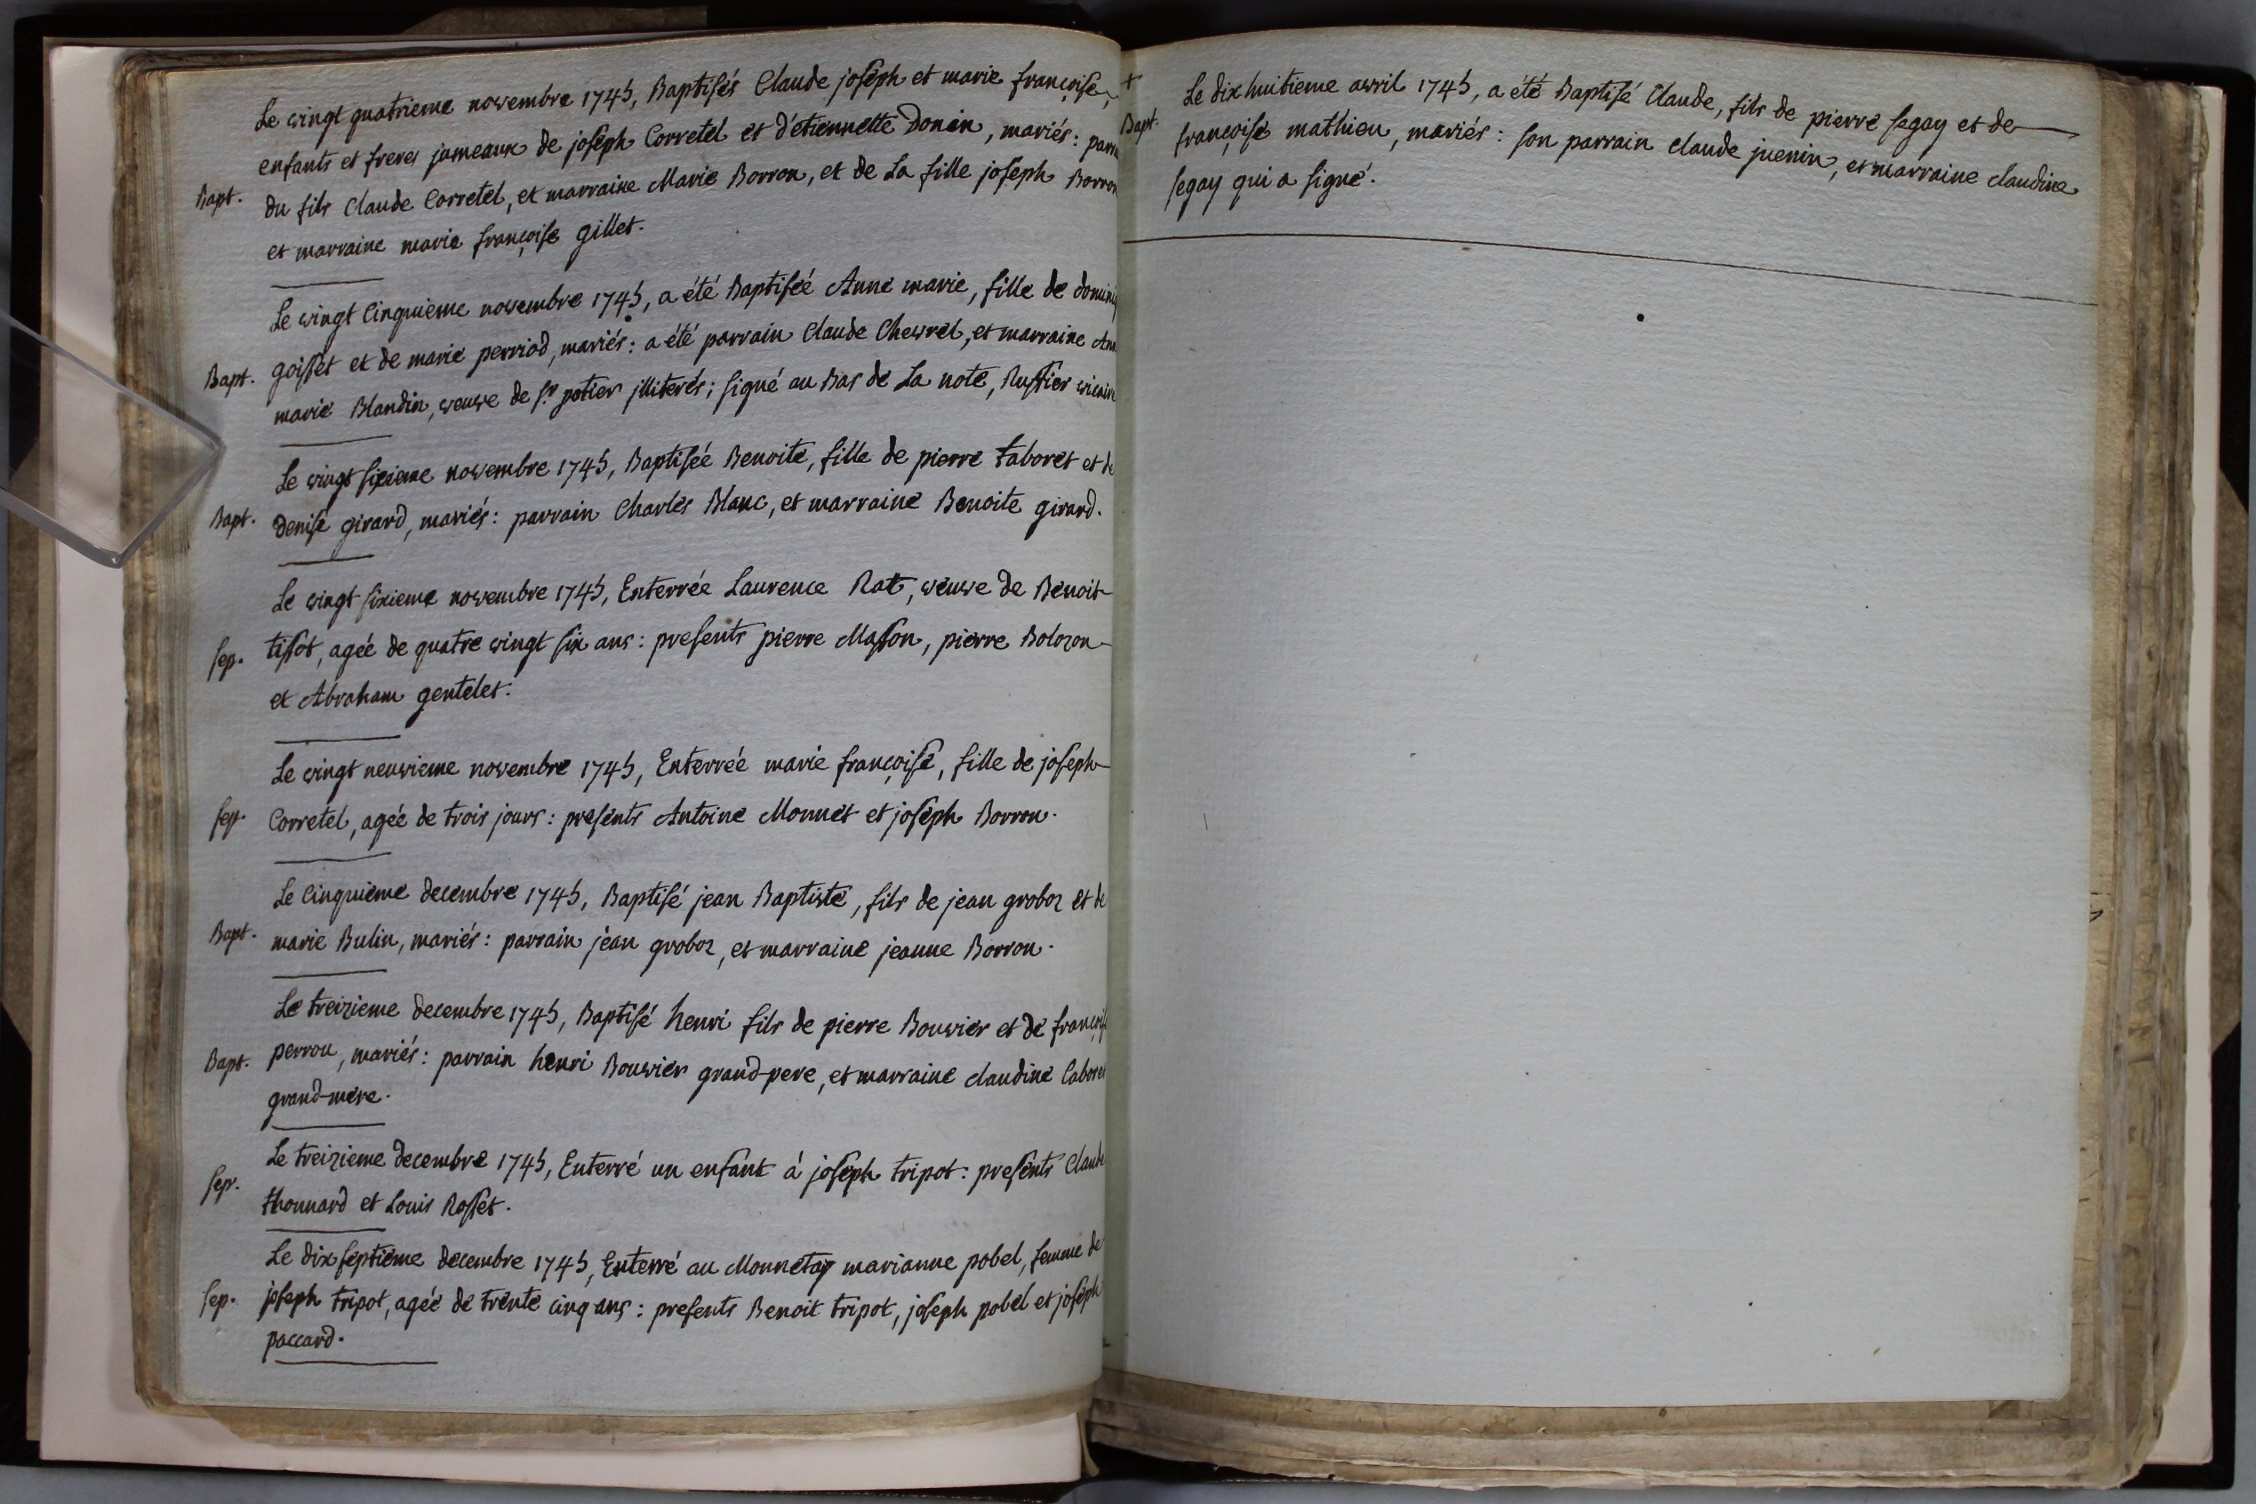 Le vingt quatrieme novembre 1745, Baptisés Claude joseph et marie françoise,
enfants et freres jumeaux de joseph Corretel et d'etiennette Donin, mariés: parra
Bapt. du fils Claude Corretel, et marraine Marie Borron, et de La fille joseph Borron
et marraine marie françoise gillet.
Le vingt Cinquieme novembre 1745, a été Baptisée Anne marie, fille de domini
Bapt. goisset et de marie perriod, mariés: a été parrain Claude Chevrel, et marraine Ann
marie Blandin, veuve de Sr. potier jlliterés; signé au Bas de La note, Ruffier vicaire
Le vingt sixieme novembre 1745, Baptisée Benoite, fille de pierre taboret et de
Bapt. Denise girard, mariés: parrain Charles Blanc, et marraine Benoite girard.
Le vingt sixieme novembre 1745, Enterrée Laurence Rat, veuve de Benoit
Sep. tissot, agée de quatre vingt six ans: presents pierre Masson, pierre Bolozon
et Abraham gentelet.
Le vingt neuvieme novembre 1745, Enterrée marie françoise, fille de joseph
Sep. Corretel, agée de trois jours: presents Antoine Monnet et joseph Borron.
Le Cinquieme decembre 1745, Baptisé jean Baptiste, fils de jean groboz et de
Bapt. marie Bulin, mariés: parrain jean groboz, et marraine jeanne Borron.
Le treizieme decembre 1745, Baptisé henri fils de pierre Bouvier et de françois
Bapt. perrou, mariés: parrain henri Bouvier grand-pere, et marraine claudine Caboret
grand-mere.
Le treizieme decembre 1745, Enterré un enfant á joseph tripot: presents Claude
Sep. thonnard et Louis Rosset.
Le dix septieme decembre 1745, Enterré au Monnetay marianne pobel, femme de
Sep. joseph tripot, agée de trente cinq ans: presents Benoit tripot, joseph pobel et joseph
paccard.
+ Le dix huitieme avril 1745, a été Baptisé Claude, fils de pierre segay et de
Bapt. françoise mathieu, mariés: son parrain claude juenin, et marraine claudine
segay qui a signé.